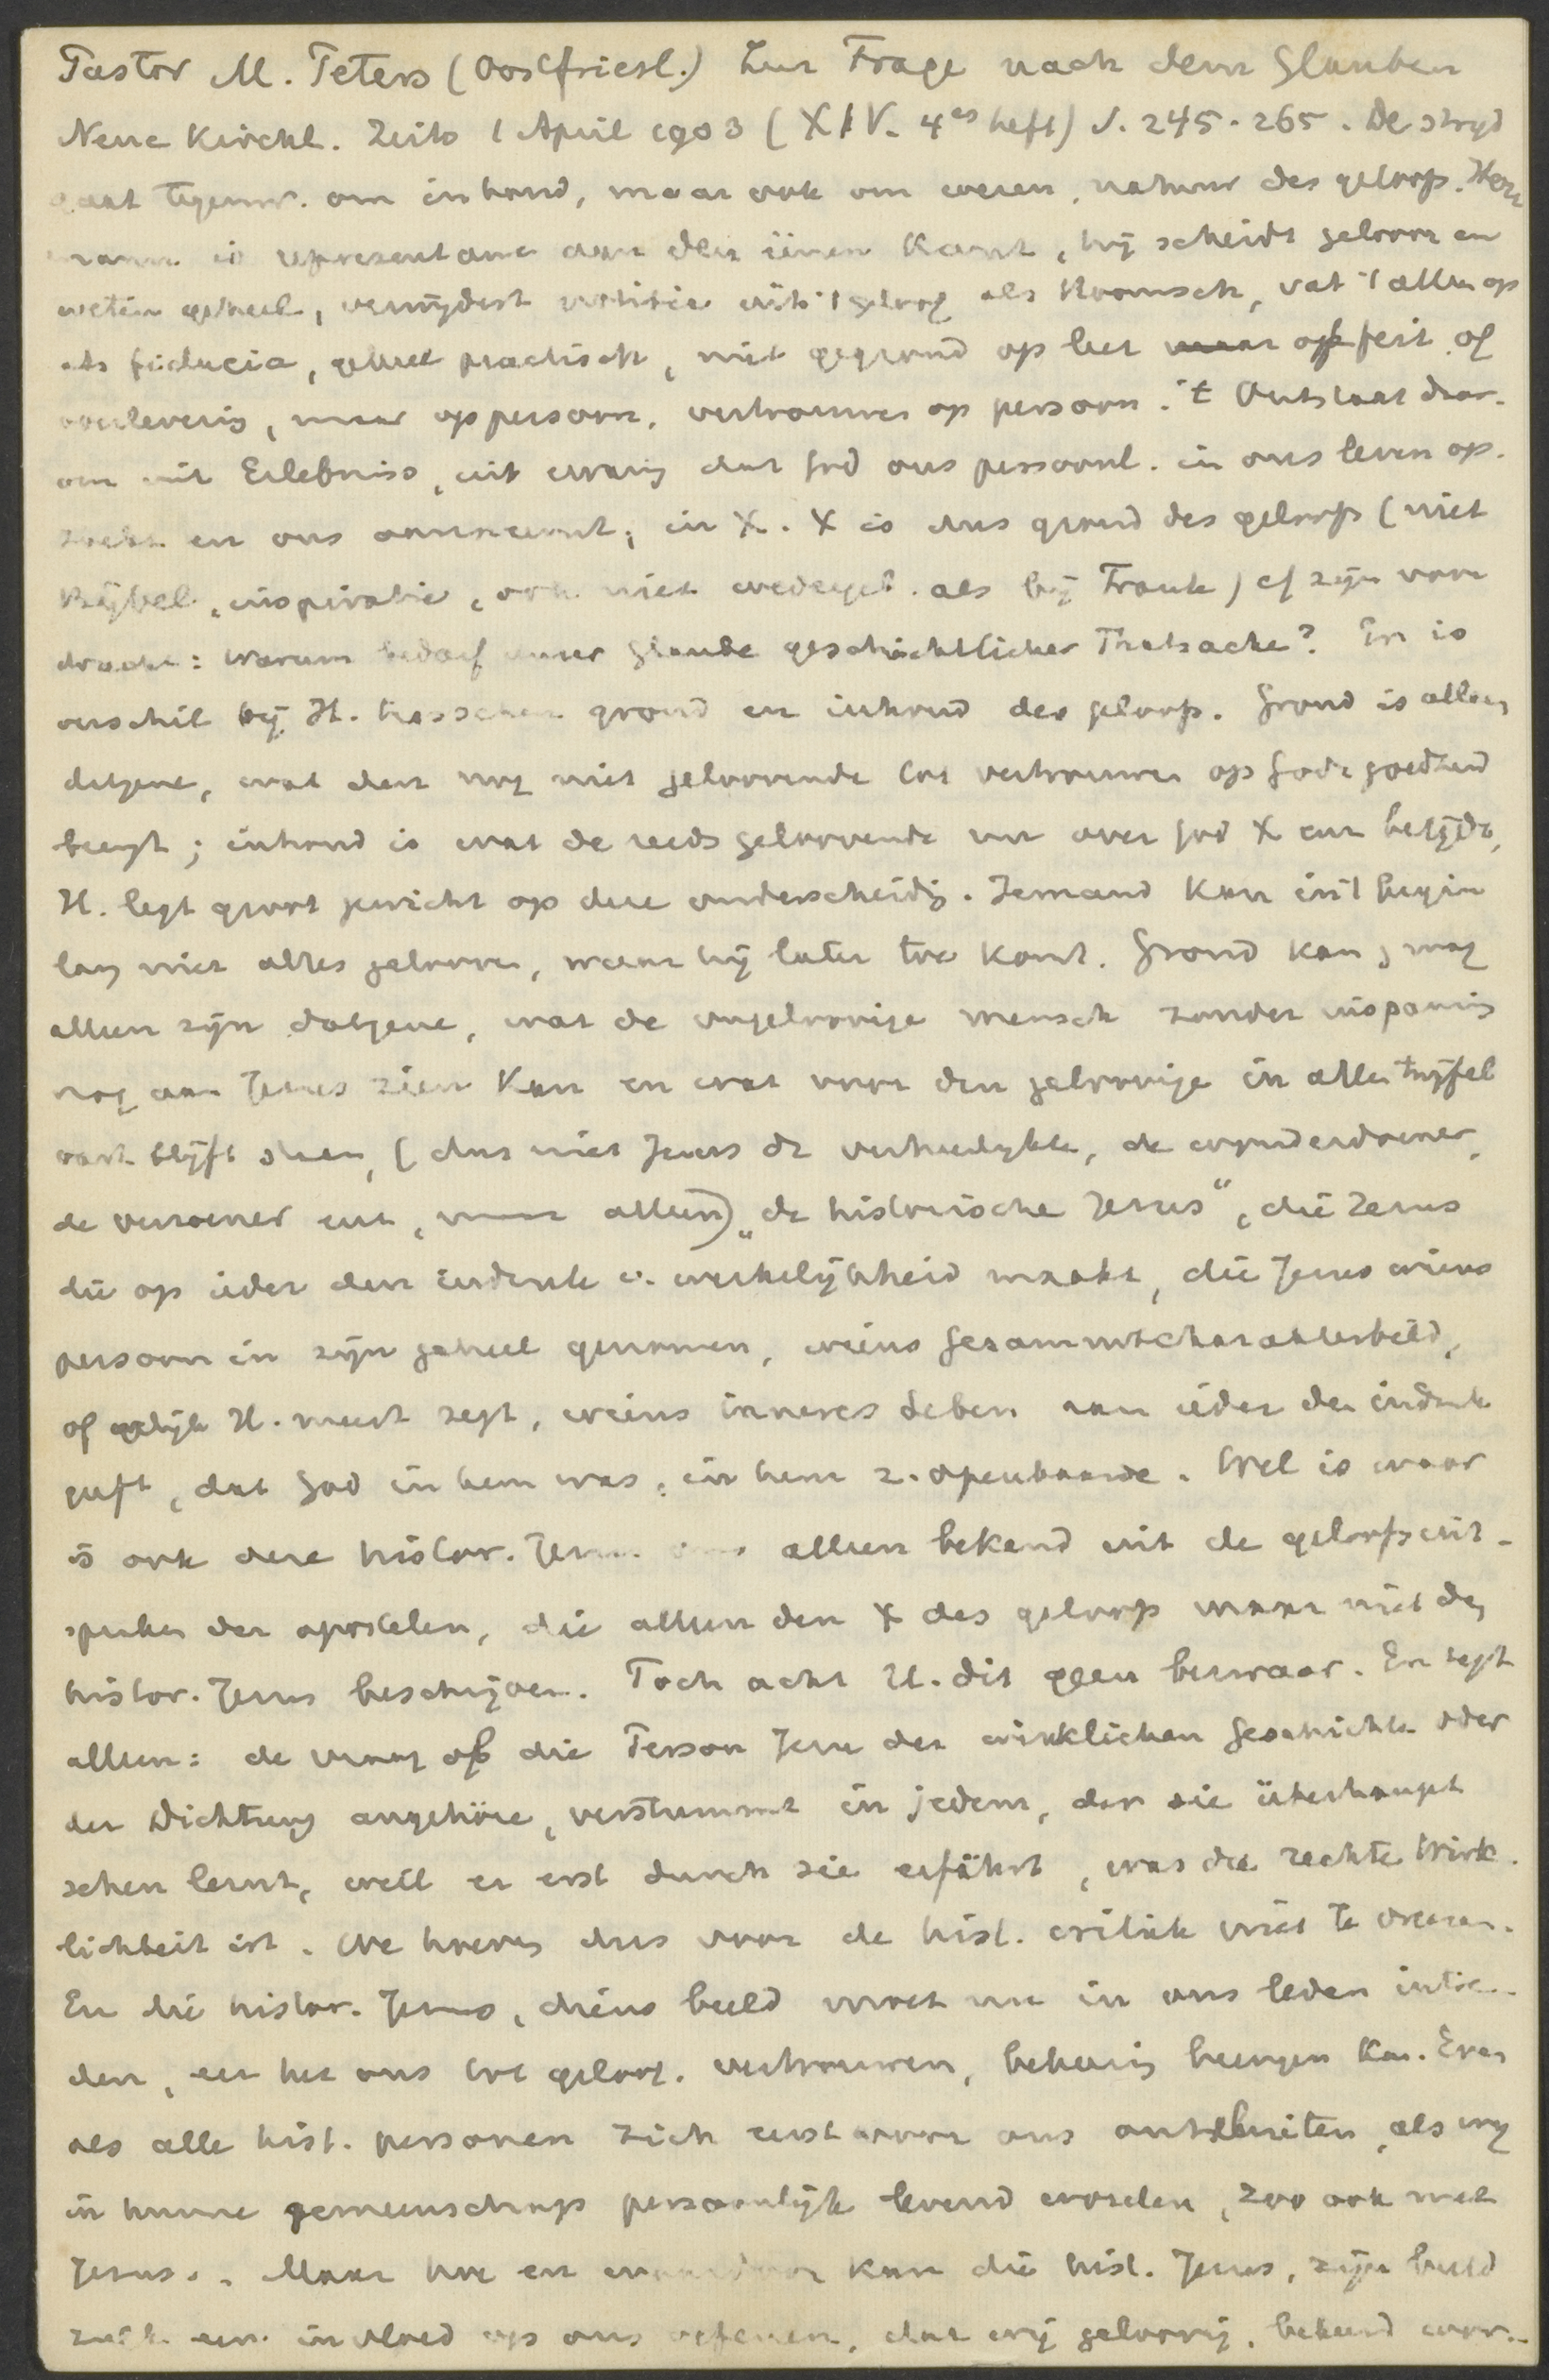 Pastor M. Peters (Oostfriesl.) Zur Frage nach dem Glauben
Neue Kirchl. Zeits 1 April 1903 (XIV. 4es heft) S. 245-265. De stryd
gaat tegenw. om inhoud, maar ook om wezen, natuur des geloofs. Herr
mann is representant aan den éénen kant, hij scheidt geloof en
weten geheel, verwijdert notitie uit 't geloof als Roomsch, vat 't alleen op
als fiducia, geheel practisch, niet gegrond op leer of feit of
overlevering, maar op persoon, vertrouwen op persoon. 't Ontstaat daar-
om uit Erlebniss, uit ervaring dat God ons persoonl. in ons leven op-
zoekt en ons aanneemt, in X. X is dus grond des geloofs (niet
Bijbel, inspiratie, ook niet wedergeb. als bij Frank) cf zijn voor
dracht: Warum bedarf unser Glaube geschichtlicher Thatsache? Er is
verschil bij H. tusschen grond en inhoud des geloofs. Grond is alleen
datgene, wat den nog niet geloovende tot vertrouwen op Gods goedheid
brengt; inhoud is wat de reeds geloovende nu over God X enz belijdt,
H. legt groot gewicht op deze onderscheidg. Iemand kan in 't begin
lang niet alles gelooven, waar hij later toe komt. Grond kan en mag
alleen zijn datgene, wat de ongeloovige mensch zonder inspannig
nog aan Jezus zien kan en wat voor den geloovige in alle twijfel
vast blijft staan, (dus niet Jezus de verheerlykte, de wonderdoener,
de verzoener enz, maar alleen) „de historische Jezus", die Jezus
die op ieder den indruk v. werkelijkheid maakt, die Jezus wiens
persoon in zijn geheel genomen, wiens Gesammtcharakterbild,
of gelijk H. meest zegt, wiens inneres Leben aan ieder den indruk
geeft, dat God in hem was, in hem z. openbaarde. Wel is waar
is ook deze histor. Jezus ons alleen bekend uit de geloofsuit-
spraken der apostelen, die alleen den X des geloofs maar niet den
histor. Jezus beschrijven. Toch acht H. dit geen bezwaar. En zegt
alleen: de vraag ob die Person Jesu der wirklichen Geschichte oder
der Dichtung angehöre, verstummt in jedem, der sie überhaupt
sehen lernt, weil er erst durch sie erfährt, was die rechte Wirk-
lichkeit ist. We hoeven dus voor de hist. critiek niet te vreezen.
En die histor. Jezus, diens beeld moet nu in ons leden intre-
den, eer het ons tot geloof. vertrouwen, bekeerig brengen kan. Even
als alle hist. personen zich eerst voor ons ontsluiten, als wij
in hunne gemeenschap persoonlijk levend worden, zoo ook met
Jezus.. Maar hoe en waardoor kan die hist. Jezus, zijn beeld
zulk een invloed op ons oefenen, dat wij geloovig, bekeerd wor-